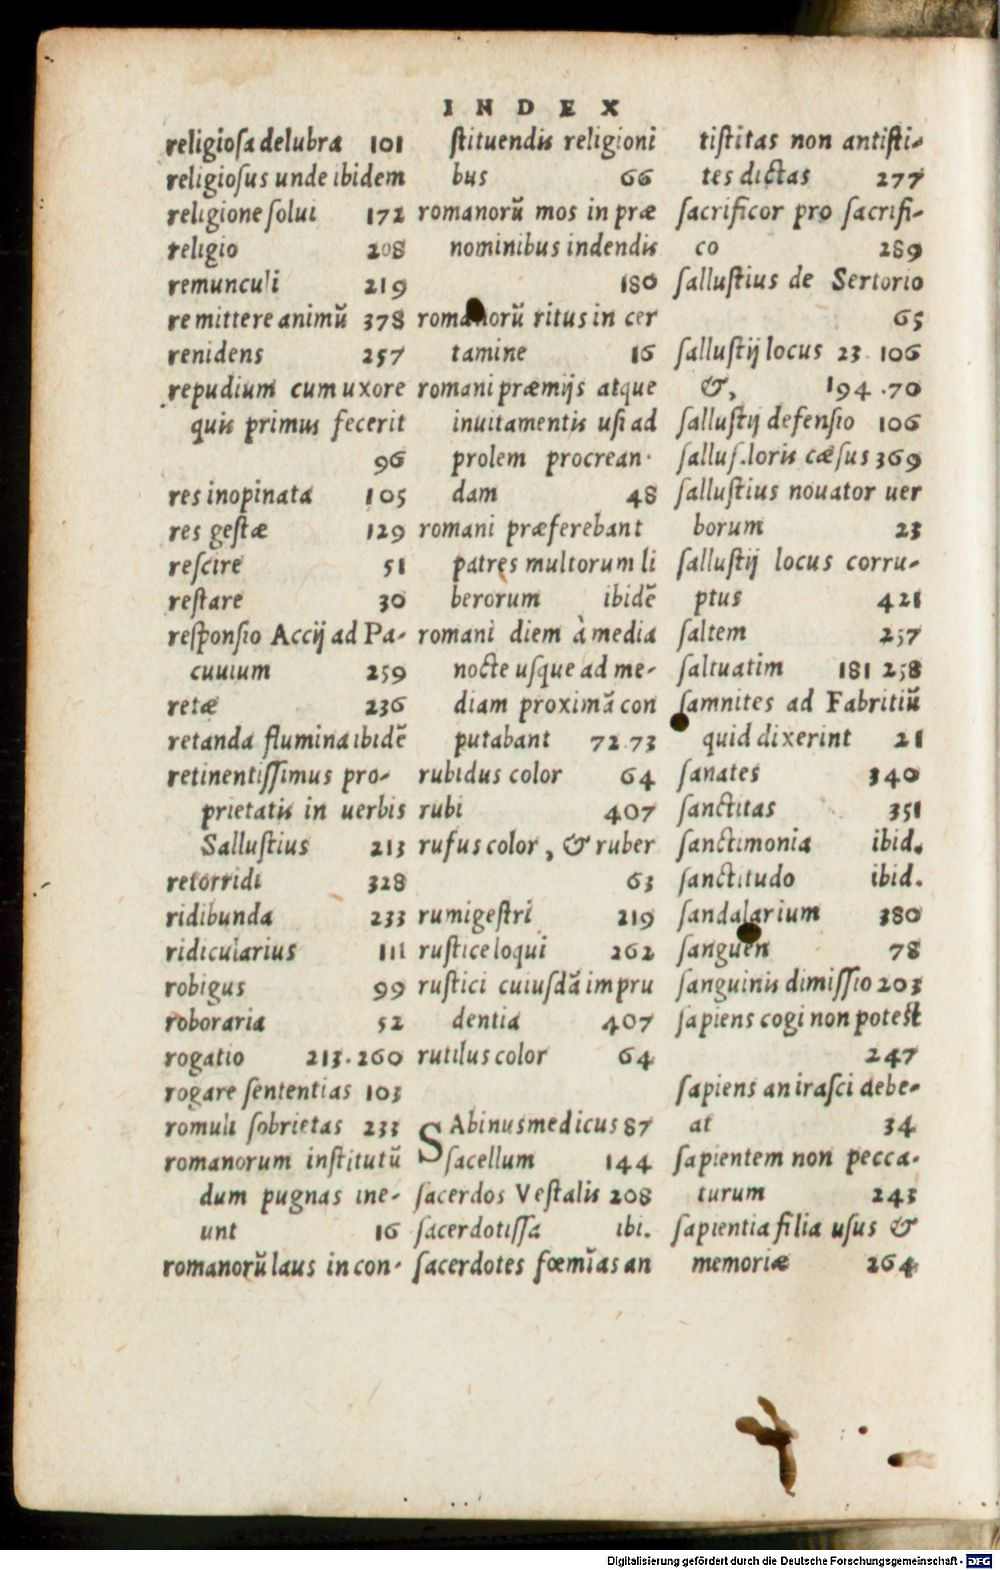 INDEX
religiosa delubra 101
religiosus unde ibidem
religione solui 172
religio 208
remunculi 219
remittere animũ 378
renidens 257
repudium cum uxore
quis primus fecerit
96
res inopinata 105
res gestæ 129
rescire 51
restare 30
responsio Accij ad Pa-
cuuium 259
retæ 236
retanda flumina ibidẽ
retinentissimus pro-
prietatis in uerbis
Sallustius 213
retorridi 328
ridibunda 233
ridicularius 111
robigus 99
roboraria 52
rogatio 213.260
rogare sententias 103
romuli sobrietas 233
romanorum institutũ
dum pugnas ine-
unt 16
romanorũ laus in con-
stituendis religioni
bus 66
romanorũ mos in præ
nominibus indendis
180
romanorũ ritus in cer
tamine 16
romani præmijs atque
inuitamentis usi ad
prolem procrean-
dam 48
romani præferebant
patres multorum li
berorum ibidẽ
romani diem à media
nocte usque ad me-
diam proximã con
putabant 72.73
rubidus color 64
rubi 407
rufus color, & ruber
63
rumigestri 219
rustice loqui 262
rustici cuiusdã impru
dentia 407
rutilus color 64
SAbinus medicus 87
sacellum 144
sacerdos Vestalis 208
sacerdotissa ibi.
sacerdotes fœmĩas an
tistitas non antisti-
tes dictas 277
sacrificor pro sacrifi-
co 289
sallustius de Sertorio
65
sallustij locus 23 106
&, 194.70
sallustij defensio 106
sallus. loris cæsus 369
sallustius nouator uer
borum 23
sallustij locus corru-
ptus 421
saltem 257
saltuatim 181 258
samnites ad Fabritiũ
quid dixerint 21
sanates 340
sanctitas 351
sanctimonia ibid.
sanctitudo ibid.
sandalarium 380
sanguen 78
sanguinis dimissio 203
sapiens cogi non potest
247
sapiens an irasci debe-
at 34
sapientem non pecca-
turum 243
sapientia filia usus &
memoriæ 264
Digitalisierung gefördert durch die Deutsche Forschungsgemeinschaft - DFG